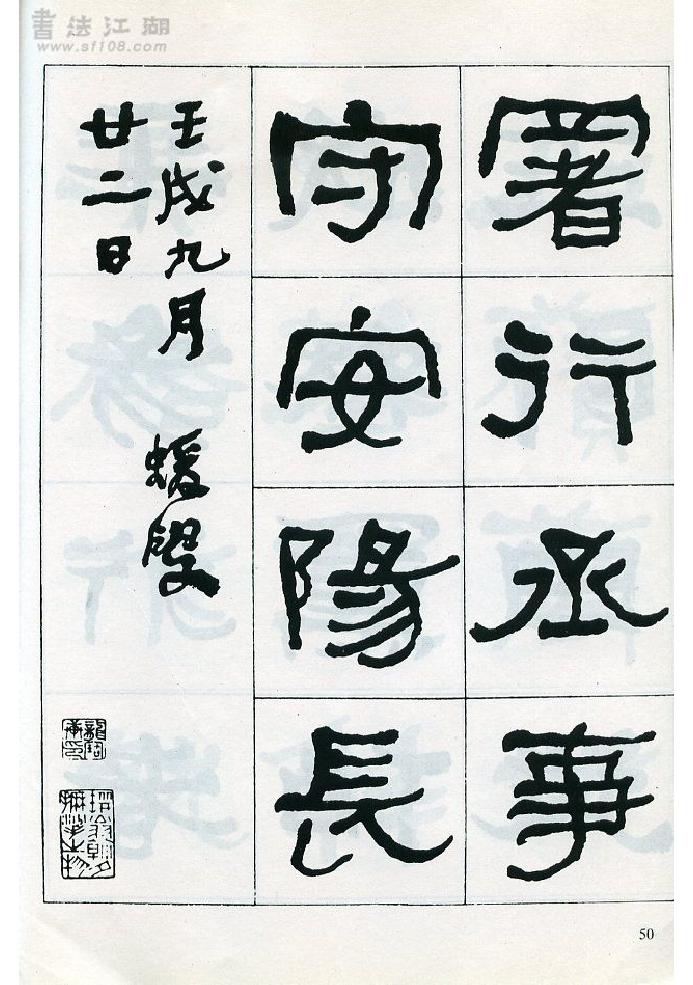 書法江湖
www.sf108.com
署行丞事
守安陽長
壬戌九月 蝯叟
廿二日
50